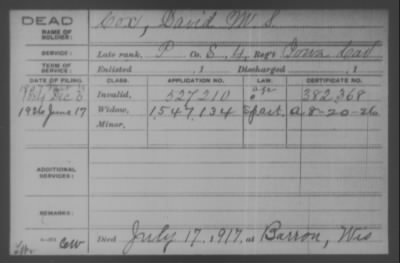 DEAD
NAME OF SOLDIER: Cox, David M. S.
SERVICE: Late rank, P Co. S, 4, Reg't Iowa Cav
TERM OF SERVICE: Enlisted , 1 Discharged , 1
DATE OF FILING. CLASS. APPLICATION NO. LAW. CERTIFICATE NO.
Dec Invalid, 527210 age 382,368
1926 June 17 Widow, 1,547,134 a 8-20-26
Minor,
ADDITIONAL SERVICES:
REMARKS:
Died July 17, 1917, at Barron, Wis